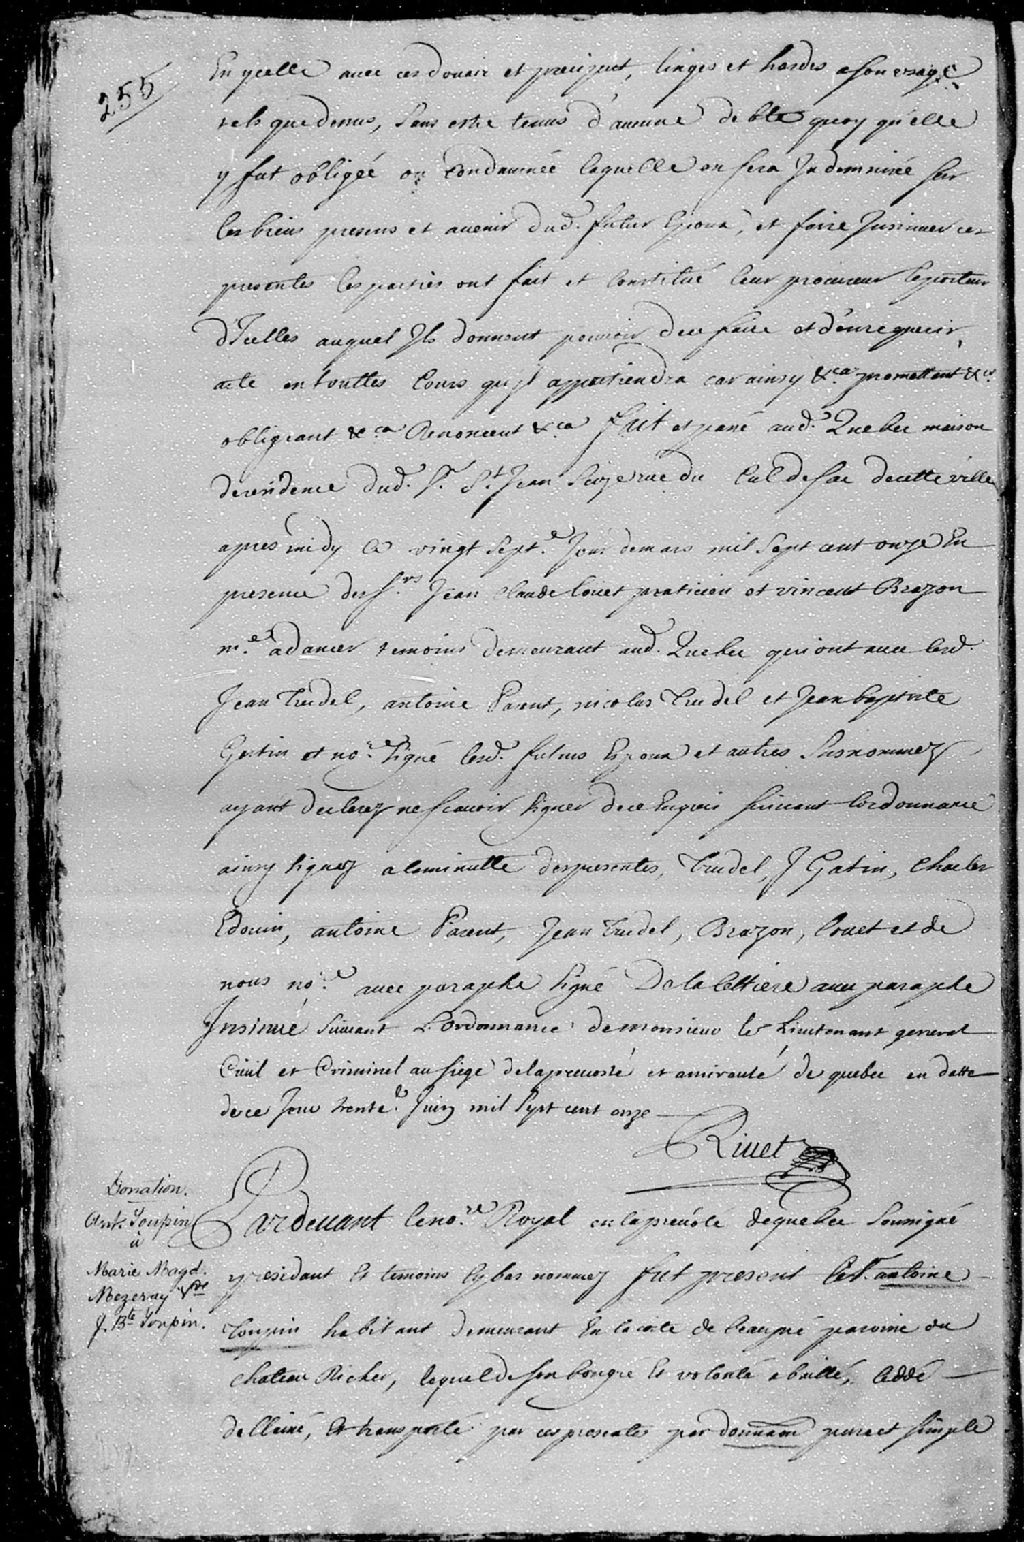 255
En ycelle avec ces douaire et preciput, linges et hardes a son usage
tels que dessus, sans estre tenus d'aucune debte quoy qu'elle
y fut obligée ou condamnée laquelle en sera Indemnisé sur
les biens presens et avenir dud. futur Epoux, et faire Insinuer ces
presentes les parties ont fait et Constitué leur procureur le porteur
d'Icelles auquel Ils donnent pouvoir de ce faire et d'en requerir
acte en touttes Cours qu'il appartiendra car ainsy &ca promettant &ca
obligeant &ca Renonceant &ca fait et passé aud. Quebec maison
de residence dud. Sr. St. Jean Sizerue du Cul de Sac de cette ville
apres midy le vingt Septe. Jour de mars mil Sept cent onze En
presence des Srs. Jean Claude Louet praticien et vincent Brazon
me. a dancer temoins demeurant aud. Quebec qui ont avec lesd.
Jean Trudel, antoine Parent, nicolas Trudel et Jean baptiste
Gatin et nore. Signé lesd. futurs Epoux et autres Susnommez
ayant declarez ne scavoir signer de ce Enquis suivant lordonnance
ainsy signez a la minutte des presentes, Trudel, J Gatin, Charles
Edouin, antoine Parent, Jean Trudel, Brazon, Louet et de
nous nore. avec paraphe Signé De la Cettiere avec paraphe
Insinué suivant L'ordonnance de monsieur le Lieutenant general
Civil et Criminel au siege de la prevosté et amirauté de quebec en datte
de ce Jour trente. Juin mil Sept cent onze
Rivet
Donation.
Ant. Toupin
à
Marie Magd.
Mezeray Vve
J. Bte Toupin.
Pardevant le nore. Royal en la prevoté de quebec Soussigné
y residant Et temoins cy bas nommez fut present le Sr. antoine
Toupin habitant demeurant En la coste de beaupré paroisse du
Chateau Richer, lequel de son bon gré Et volonté a baillé, Ceddé
dellaissé, Et transporté par ces presentes par donnaon pure et simple